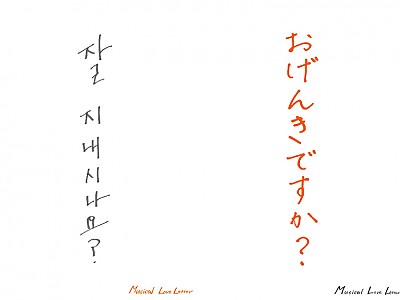 잘 지내시나요?
おげんきですか?
Musical Love Letter
Musical Love Letter